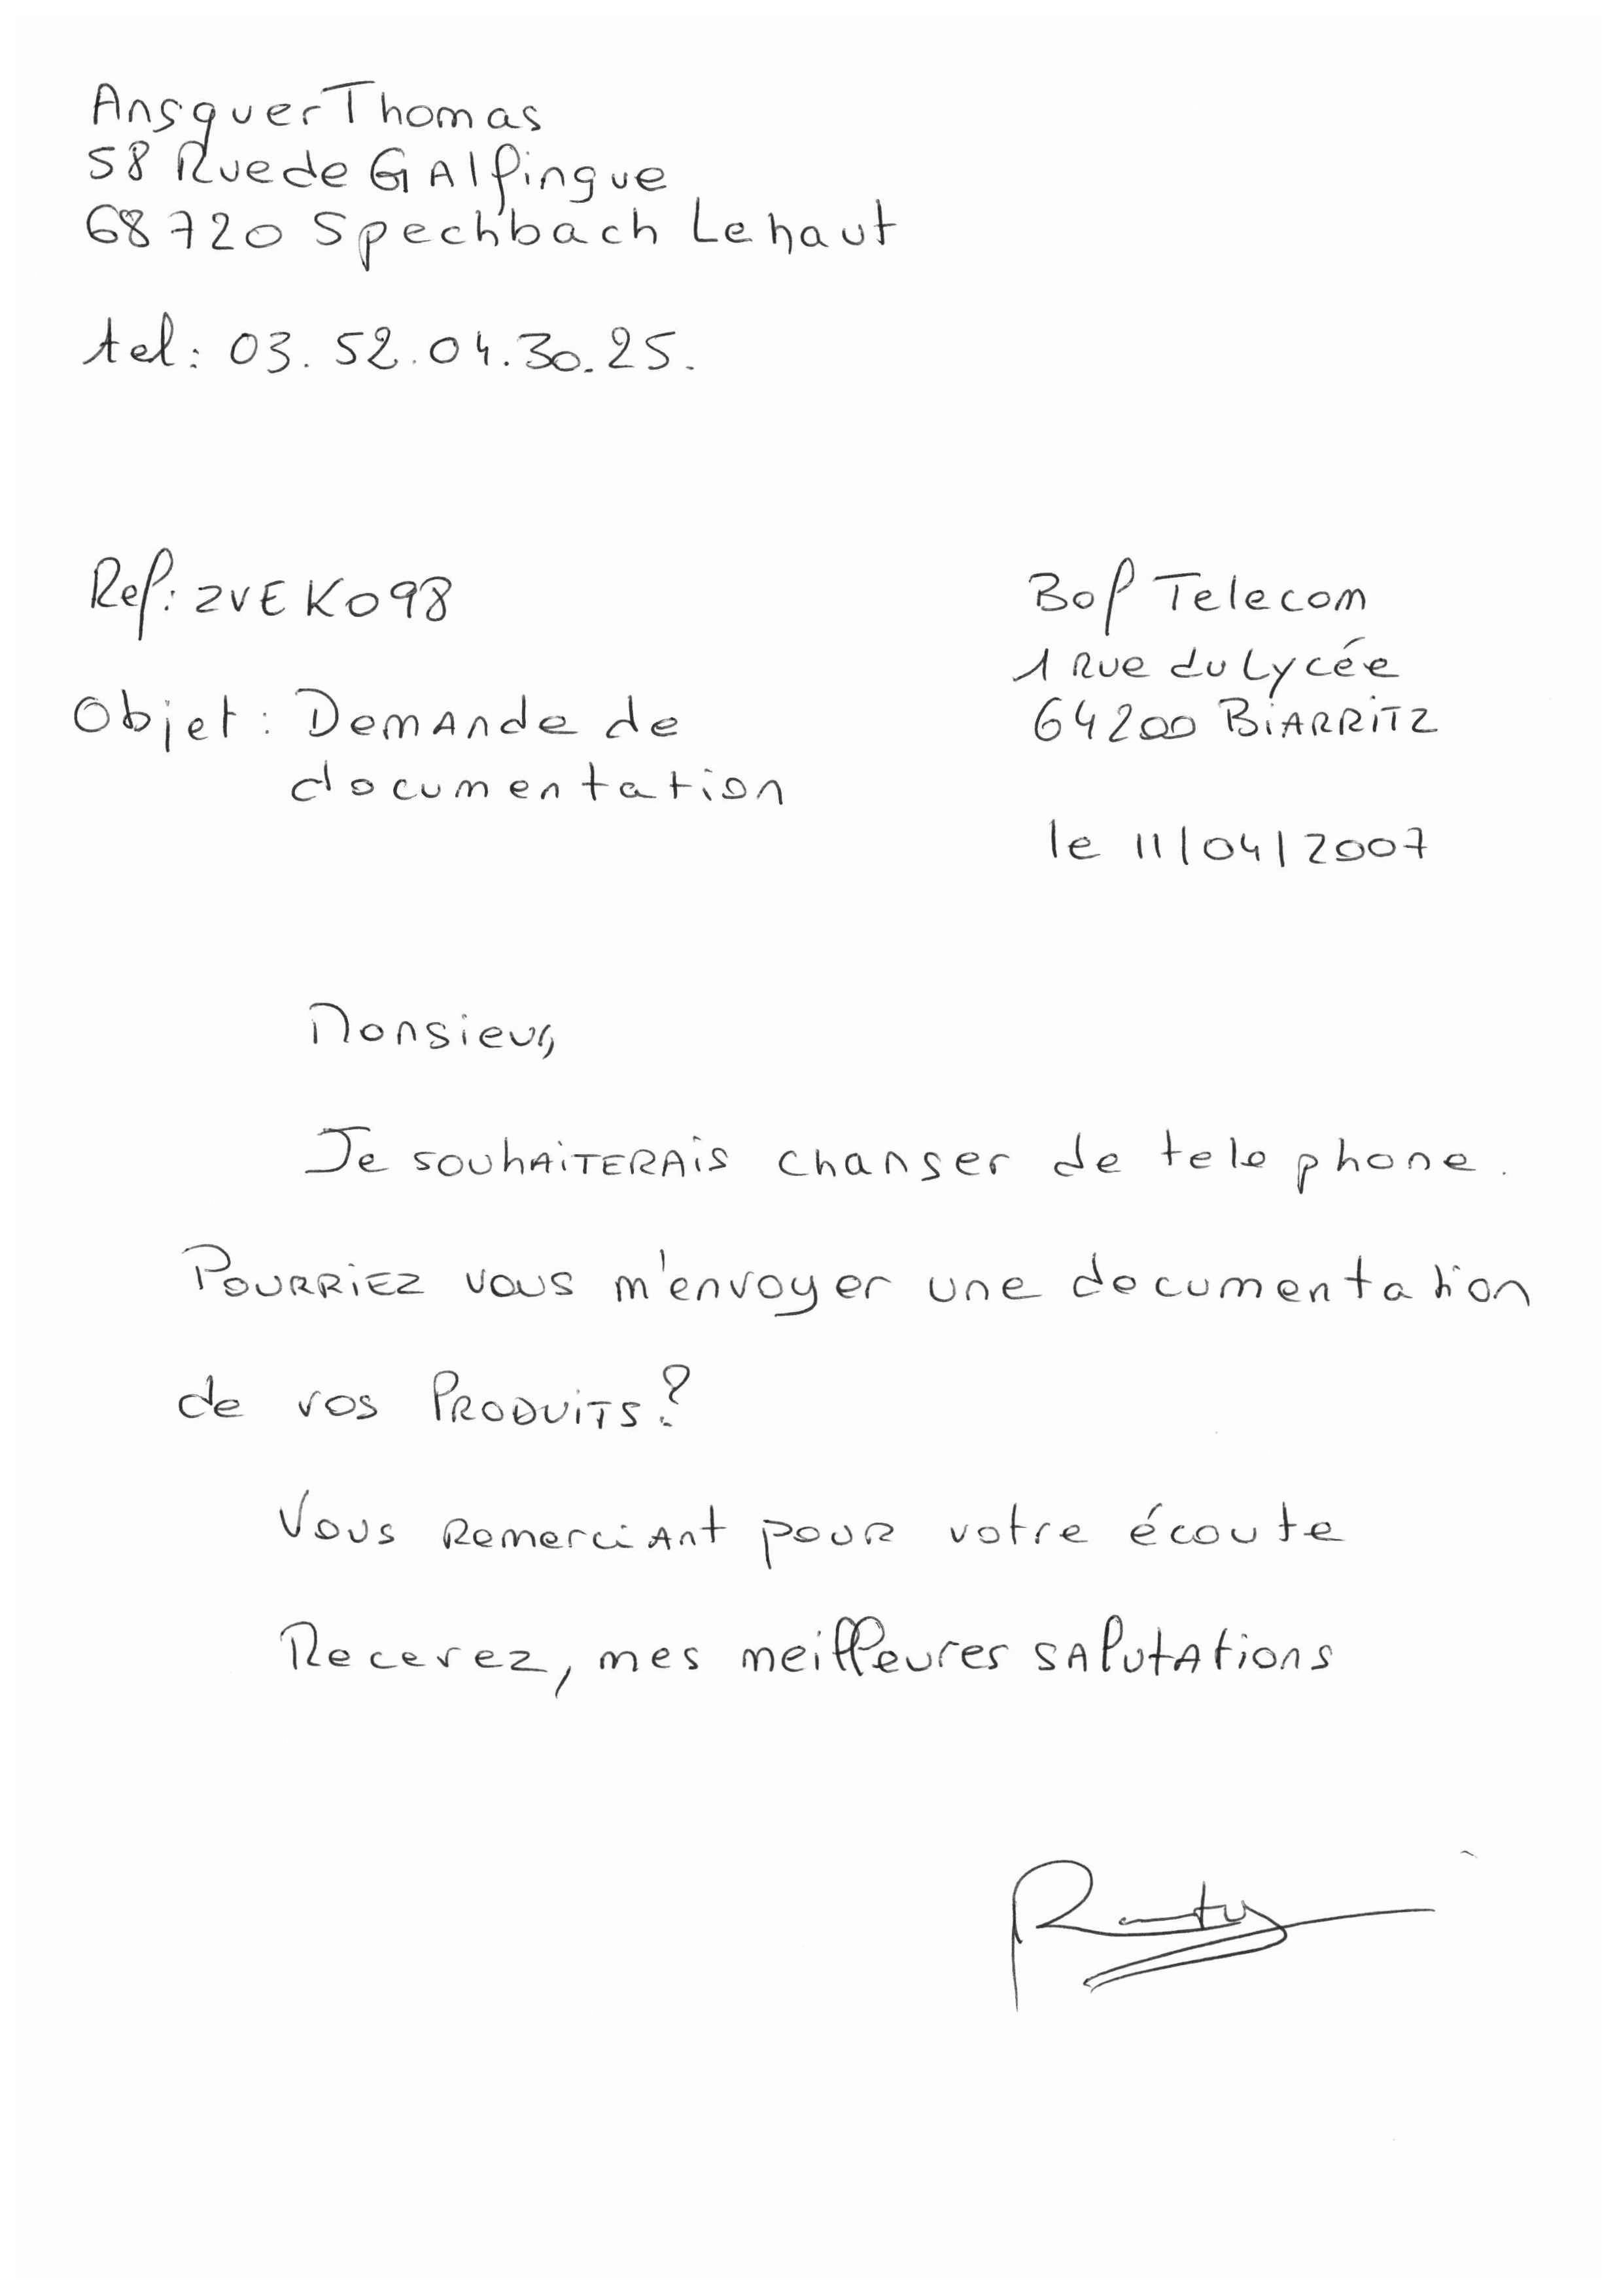 Ansquer Thomas
58 Rue de GAlfingue
68720 Spechbach Le haut
tel: 03.52.04.30.25.
Ref: ZVEKO98
Objet : Demande de
documentation
Bof Telecom
1 Rue du Lycée
64200 BiARRiTZ
le 11/04/2007
Monsieur,
Je souhAiTERAiS changer de telephone.
POURRiEZ vous m'envoyer une documentation
de vos PRODUiTS?
Vous RemerciAnt pour votre écoute
Recevez, mes meilleures sAlutAtions